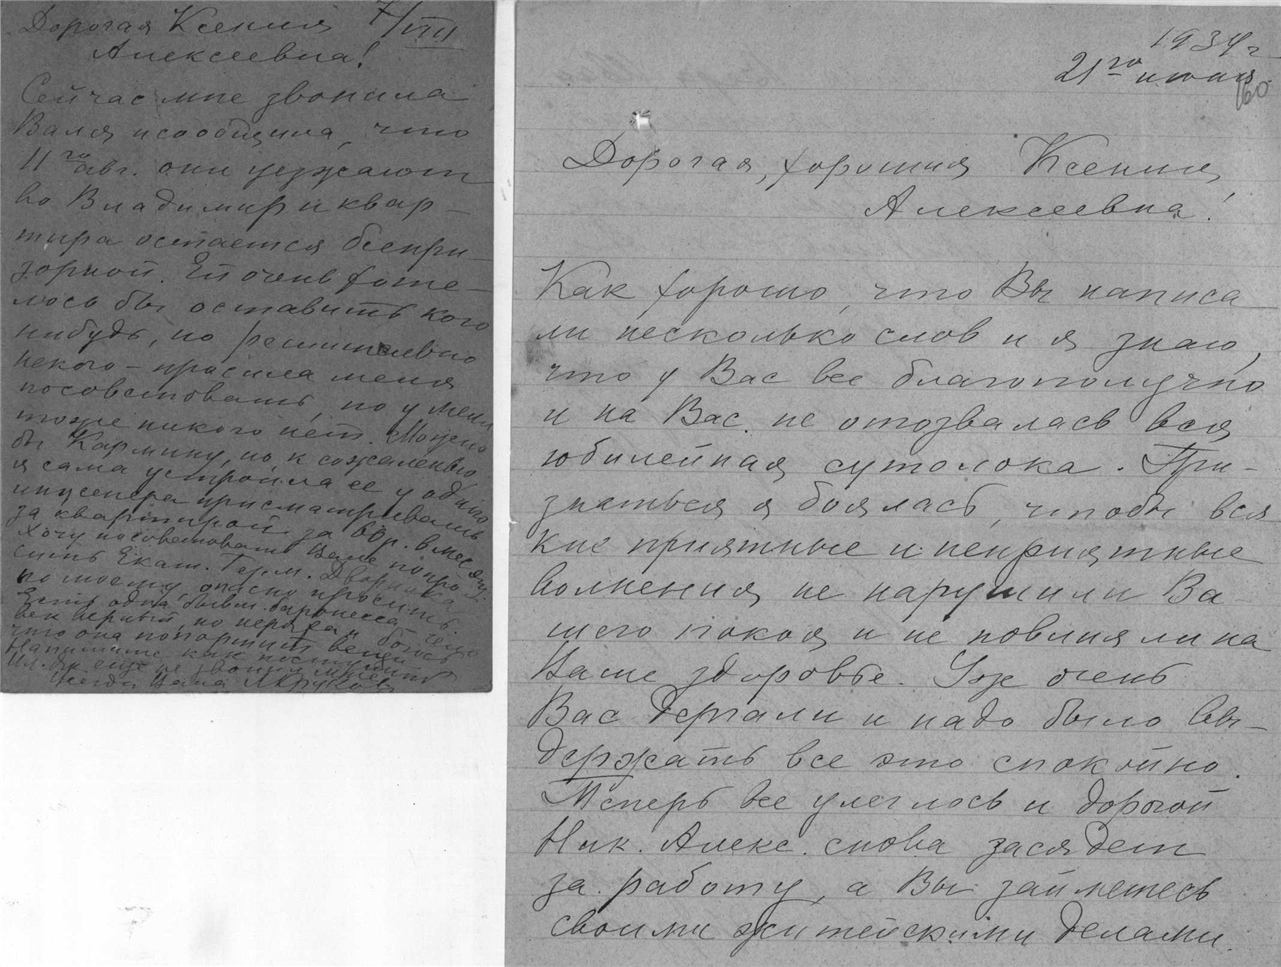 Дорогая Ксения 7/VIII
Алексеевна!
Сейчас мне звонила
Валя и сообщила, что
11го авг. они уезжают
во Владимир и квар-
тира остается беспри-
зорной. Ей очень хоте-
лось бы оставить кого
нибудь, но решительно
некого – просила меня
посоветовать, но у меня
тоже никого нет. Можно
бы Кармину, но к сожалению
я сама устроила ее у одного
инженера присматривать
за квартирой за 60р. в месяц.
Хочу посоветовать Вале попро-
сить Екат. Герм. Дворника
по моему, опасно просить.
Есть одна бывш. баронесса, чело-
век верный, но неряха и боюсь
что она попортит вещи.
Напишите как поступить
еще не звонил
Всегда Ваша
1934 г
21го июня
60
Дорогая, хорошая Ксения
Алексеевна!
Как хорошо, что Вы написа
ли несколько слов и я знаю,
что у Вас все благополучно
и на Вас не отозвалась вся
юбилейная сутолока. При-
знаться я боялась, чтобы вся
кие приятные и неприятные
волнения не нарушили Ва-
шего покоя и не повлияли на
Ваше здоровье. Уж очень
Вас дергали и надо было вы-
держать все это спокойно.
Теперь все улеглось и дорогой
Ник. Алекс. снова засядет
за работу, а Вы займетесь
своими житейскими делами.